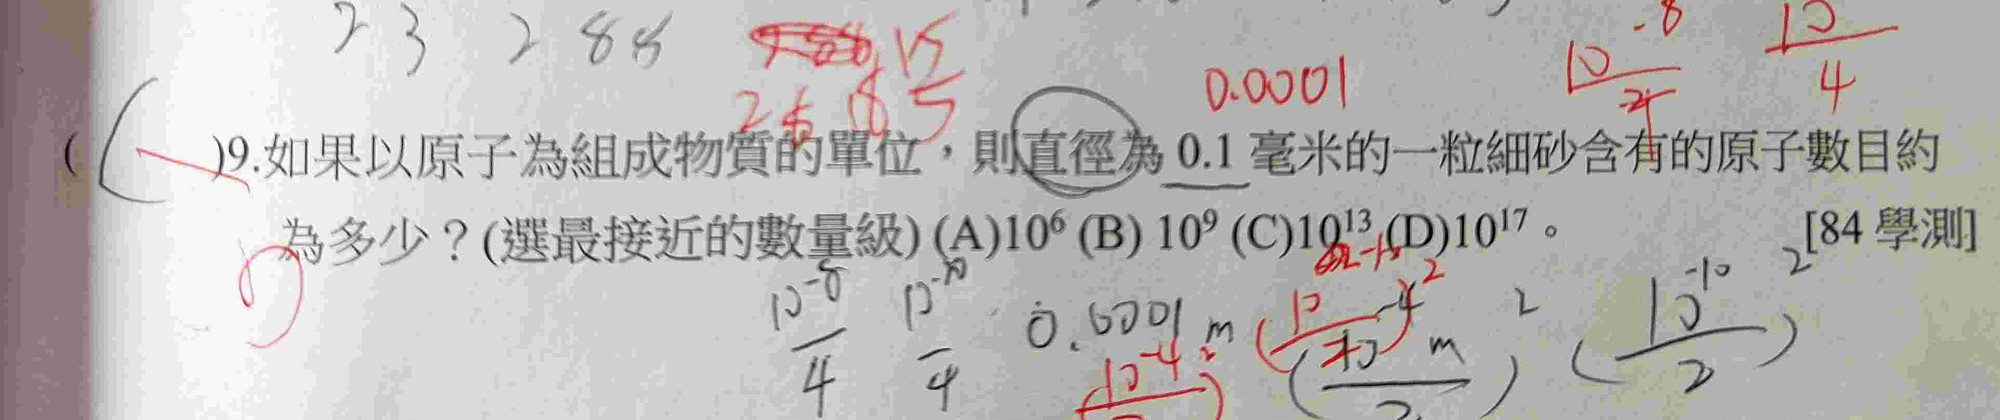 23 288
15
26 8 5
0.0001
10^-8
4
10
4
( )9.如果以原子為組成物質的單位，則直徑為 0.1 毫米的一粒細砂含有的原子數目約
為多少？(選最接近的數量級) (A)10⁶ (B) 10⁹ (C)10¹³ (D)10¹⁷。 [84 學測]
10^-8
4
10^-10
4
0.0001 m
(10^-4
2
m
)²
(10^-10
2
)²